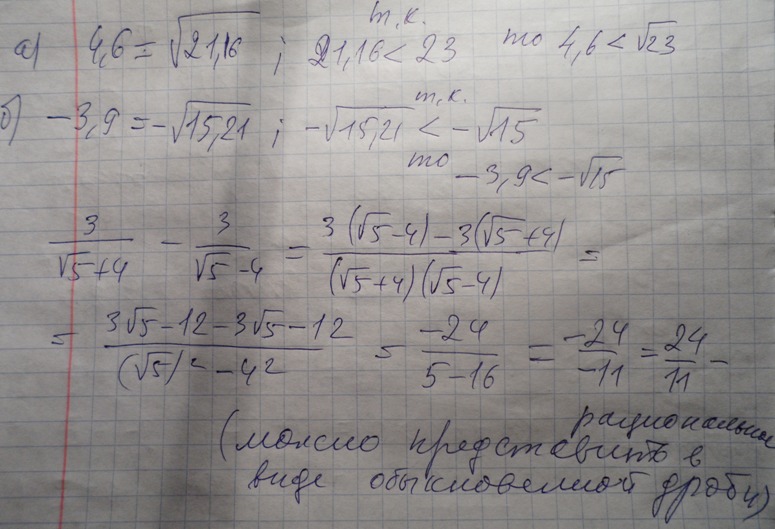 т.к.
а) 4,6 = √21,16 ; 21,16 < 23 то 4,6 < √23
т.к.
б) −3,9 = −√15,21 ; −√15,21 < −√15
то −3,9 < −√15
3/(√5+4) − 3/(√5−4) = (3(√5−4)−3(√5+4))/((√5+4)(√5−4)) =
= (3√5−12−3√5−12)/((√5)²−4²) = −24/(5−16) = −24/−11 = 24/11 −
рациональное
(можно представить в
виде обыкновенной дроби)